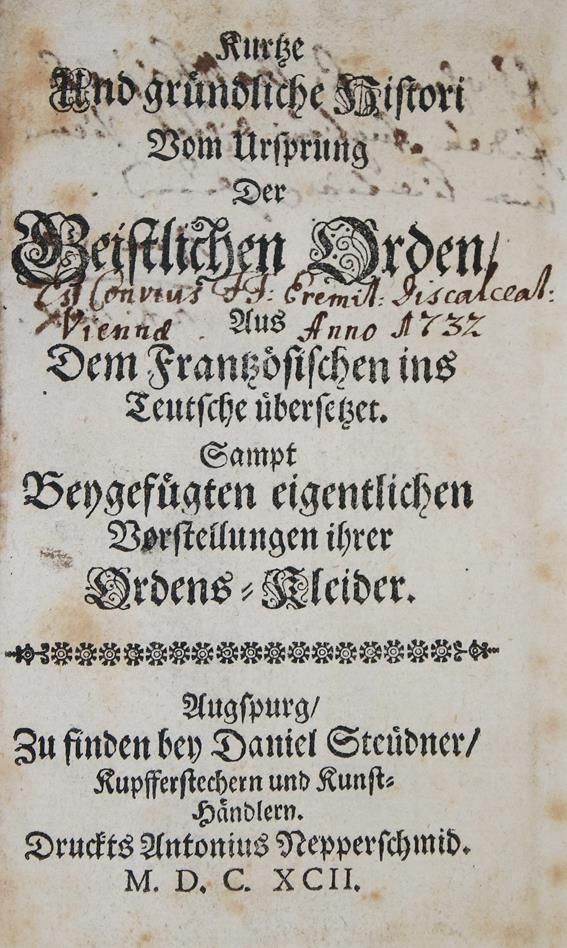 Kurtze
Und gründliche Histori
Vom Ursprung
Der
Geistlichen Orden/
Convtus FF: Eremit: Discalceat:
Viennæ Anno 1732
Aus
Dem Frantzösischen ins
Teutsche übersetzet.
Sampt
Beygefügten eigentlichen
Vorstellungen ihrer
Ordens-Kleider.
Augspurg/
Zu finden bey Daniel Steüdner/
Kupfferstechern und Kunst-
Händlern.
Druckts Antonius Nepperschmid.
M. D. C. XCII.